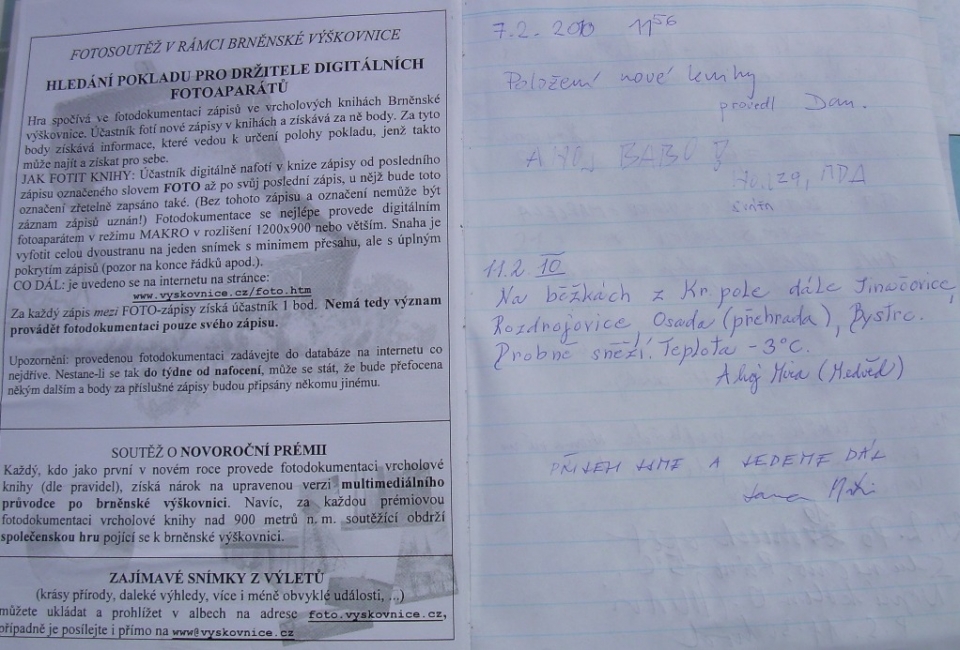 FOTOSOUTĚŽ V RÁMCI BRNĚNSKÉ VÝŠKOVNICE
HLEDÁNÍ POKLADU PRO DRŽITELE DIGITÁLNÍCH
FOTOAPARÁTŮ
Hra spočívá ve fotodokumentaci zápisů ve vrcholových knihách Brněnské
výškovnice. Účastník fotí nové zápisy v knihách a získává za ně body. Za tyto
body získává informace, které vedou k určení polohy pokladu, jenž takto
může najít a získat pro sebe.
JAK FOTIT KNIHY: Účastník digitálně nafotí v knize zápisy od posledního
zápisu označeného slovem FOTO až po svůj poslední zápis, u nějž bude toto
označení zřetelně zapsáno také. (Bez tohoto zápisu a označení nemůže být
záznam zápisů uznán!) Fotodokumentace se nejlépe provede digitálním
fotoaparátem v režimu MAKRO v rozlišení 1200x900 nebo větším. Snaha je
vyfotit celou dvoustranu na jeden snímek s minimem přesahu, ale s úplným
pokrytím zápisů (pozor na konce řádků apod.).
CO DÁL: je uvedeno se na internetu na stránce:
www.vyskovnice.cz/foto.htm
Za každý zápis mezi FOTO-zápisy získá účastník 1 bod. Nemá tedy význam
provádět fotodokumentaci pouze svého zápisu.
Upozornění: provedenou fotodokumentaci zadávejte do databáze na internetu co
nejdříve. Nestane-li se tak do týdne od nafocení, může se stát, že bude přefocena
někým dalším a body za příslušné zápisy budou připsány někomu jinému.
SOUTĚŽ O NOVOROČNÍ PRÉMII
Každý, kdo jako první v novém roce provede fotodokumentaci vrcholové
knihy (dle pravidel), získá nárok na upravenou verzi multimediálního
průvodce po brněnské výškovnici. Navíc, za každou prémiovou
fotodokumentaci vrcholové knihy nad 900 metrů n. m. soutěžící obdrží
společenskou hru pojící se k brněnské výškovnici.
ZAJÍMAVÉ SNÍMKY Z VÝLETŮ
(krásy přírody, daleké výhledy, více i méně obvyklé události, ...)
můžete ukládat a prohlížet v albech na adrese foto.vyskovnice.cz,
případně je posílejte i přímo na www@vyskovnice.cz
7.2. 2010 11⁵⁶
Položení nové knihy
provedl Dan.
AHOJ BABO
11.2. 10
Na běžkách z Kr. pole dále Jinačovice,
Rozdrojovice, Osada (přehrada), Bystrc.
Drobně sněží. Teplota -3°C.
Ahoj Míra (Medvěd)
JSME A JEDEME DÁL